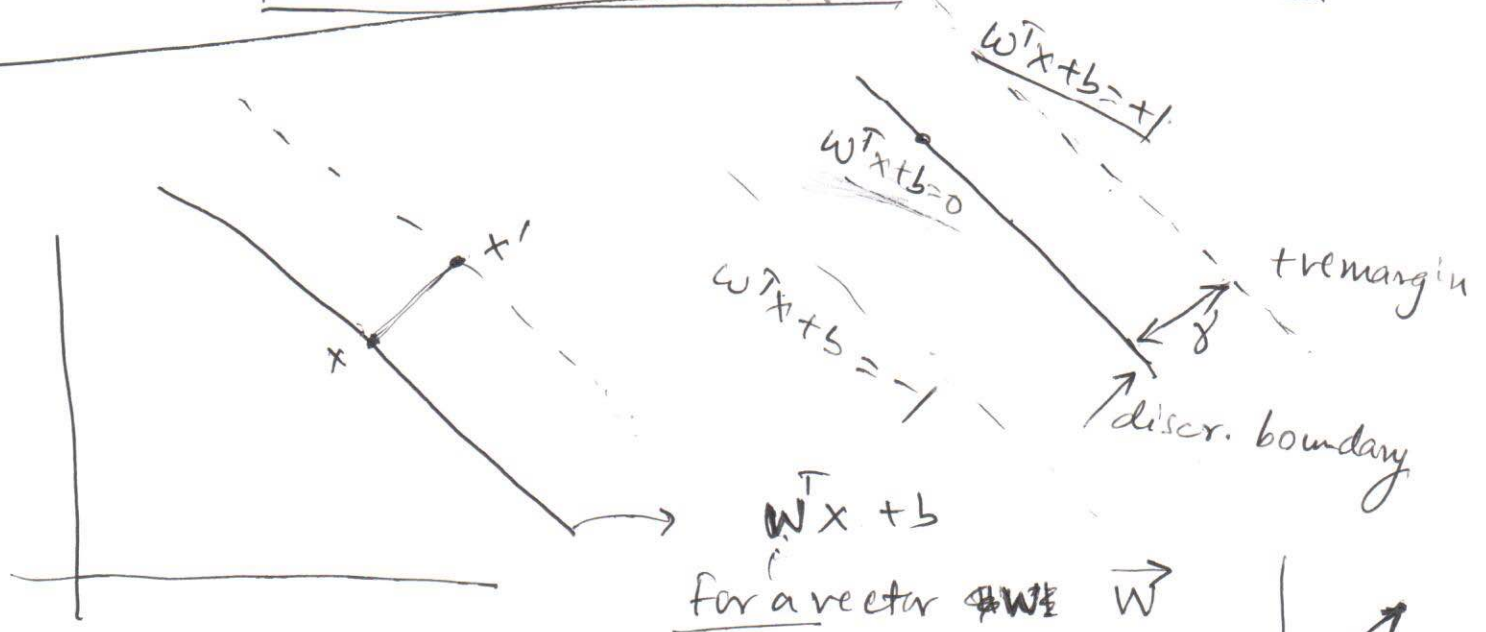 wᵀx+b=+1
wᵀx+b=0
x'
wᵀx+b=-1
+ve margin
x
γ
discr. boundary
wᵀx +b
For a vector w⃗